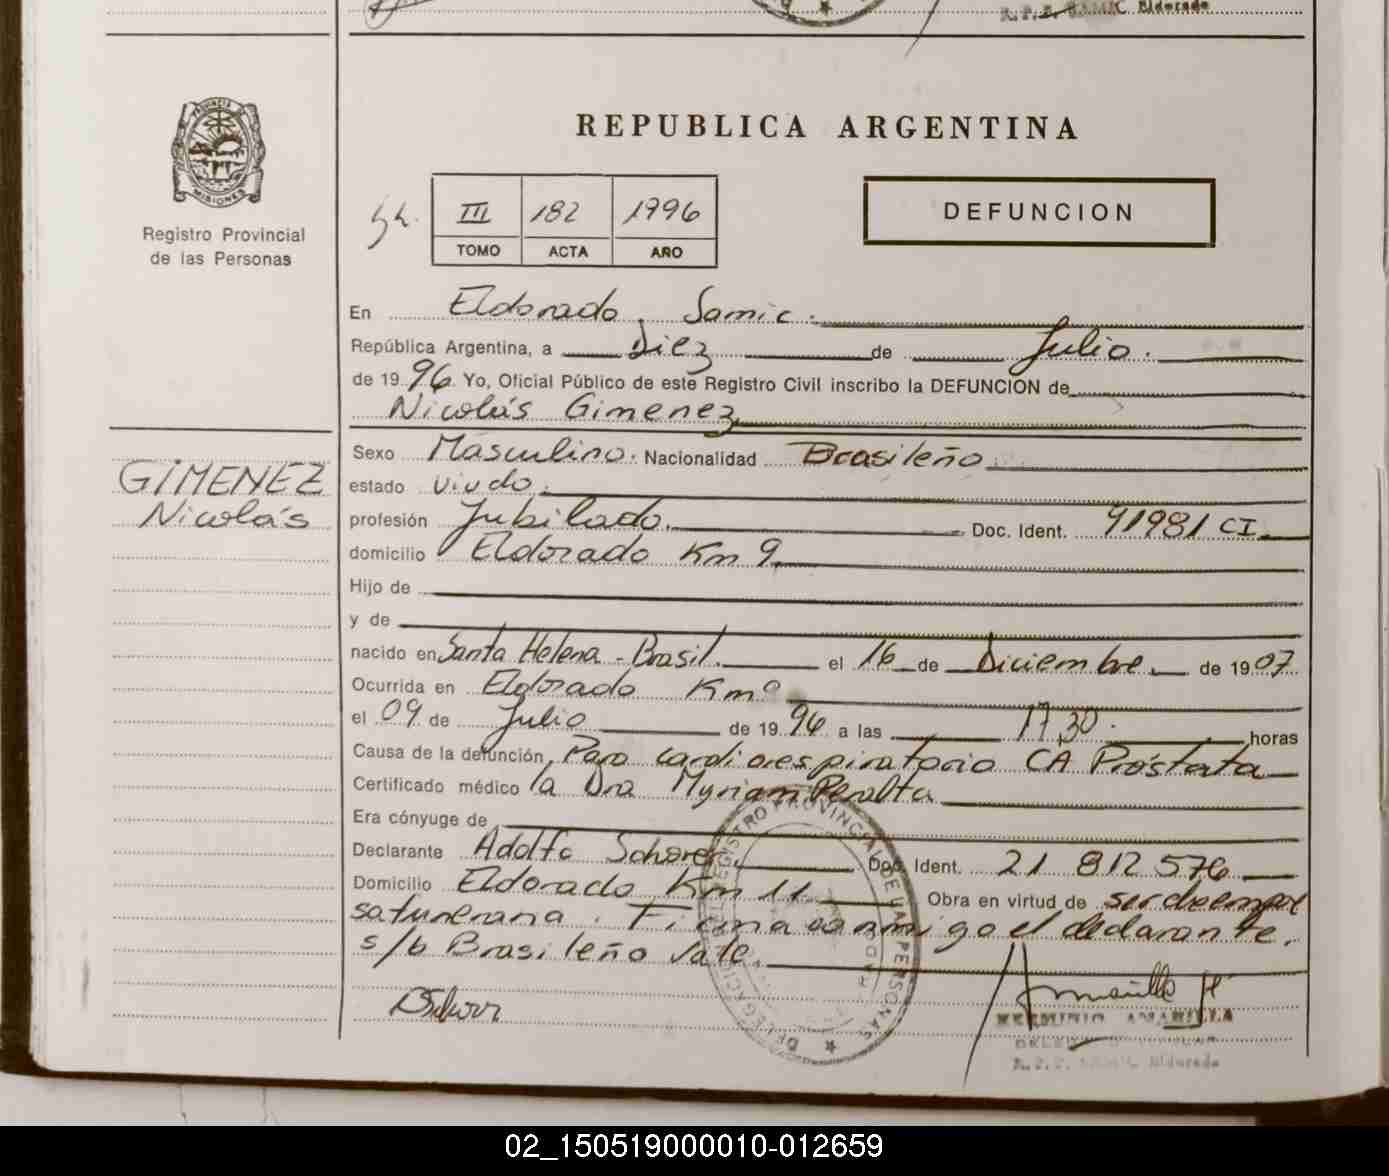 R.P.P. SAMIC Eldorado
REPUBLICA ARGENTINA
PROVINCIA DE
MISIONES
Registro Provincial
de las Personas
III 182 1996
TOMO ACTA AÑO
DEFUNCION
En Eldorado, Samic.
República Argentina, a Diez de Julio.
de 1996. Yo, Oficial Público de este Registro Civil inscribo la DEFUNCION de
Nicolás Gimenez
GIMENEZ
Nicolás
Sexo Masculino. Nacionalidad Brasileño
estado viudo.
profesión Jubilado. Doc. Ident. 91981 CI.
domicilio Eldorado Km 9
Hijo de
y de
nacido en Santa Helena - Brasil. el 16 de Diciembre de 1907
Ocurrida en Eldorado Km 9
el 09 de Julio de 1996 a las 17,30. horas
Causa de la defunción Paro cardiorespiratorio CA Próstata
Certificado médico la Dra Myriam Peralta
Era cónyuge de
Declarante Adolfo Schorer. Doc. Ident. 21 812 576
Domicilio Eldorado Km 11 Obra en virtud de ser de empre
sa funeraria. Firma conmigo el declarante.
s/b Brasileño vale
REGISTRO PROVINCIAL DE LAS PERSONAS
DELEGACION
AMARILLA
R.P.P. SAMIC Eldorado
02_150519000010-012659